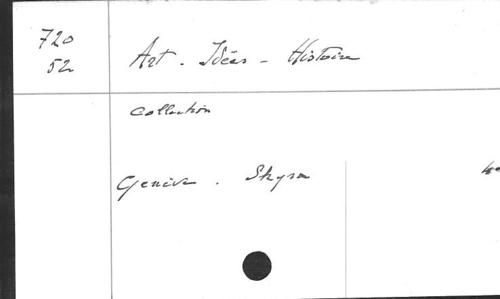 720
52
Art - Idées - Histoire
collection
Genève . Skyra